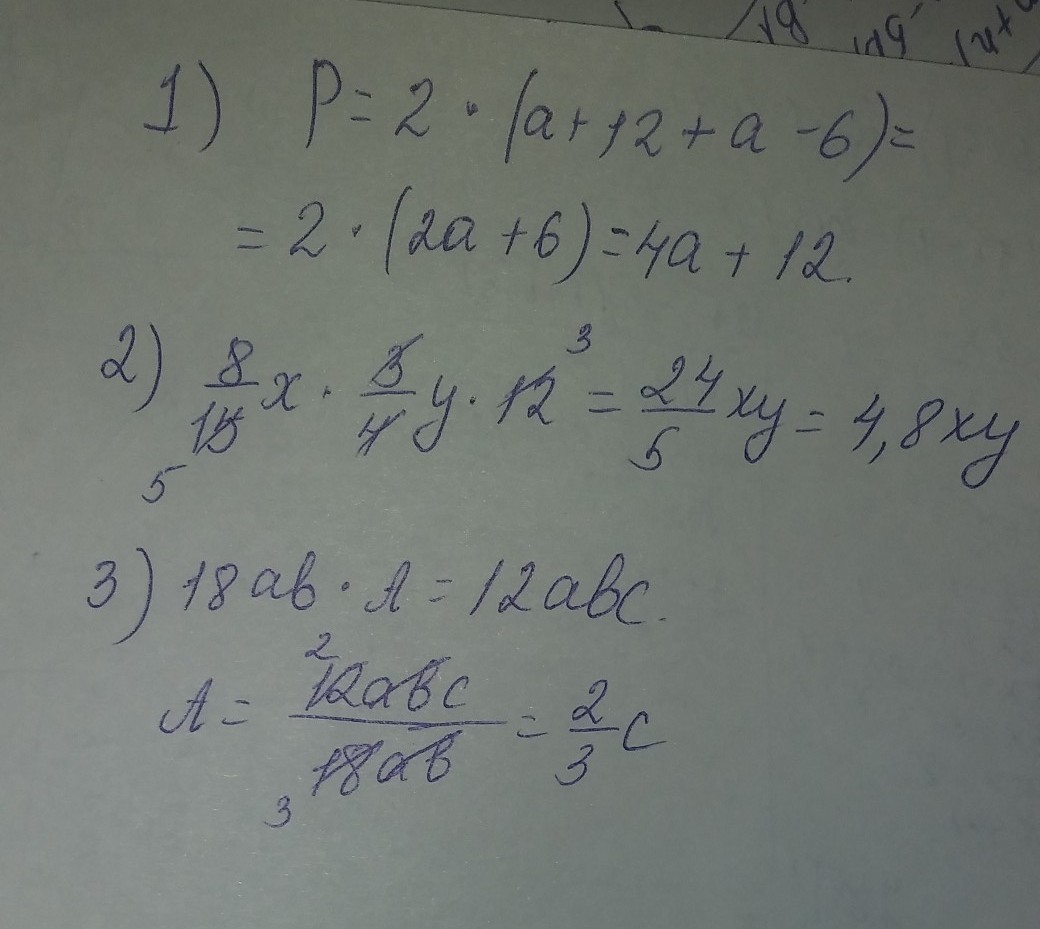 1) P = 2 · (a + 12 + a - 6) =
= 2 · (2a + 6) = 4a + 12.
2) 8/15 x · 3/4 y · 12 = 24/5 xy = 4,8xy
5 3
3) 18ab · A = 12abc.
A = 12abc/18ab = 2/3 c
2 3